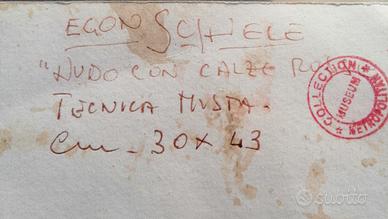 EGON SCHIELE
"NUDO CON CALZE RO
TECNICA MISTA.
Cm - 30 x 43
COLLECTION
MUSEUM
METROPOLITAN
subito